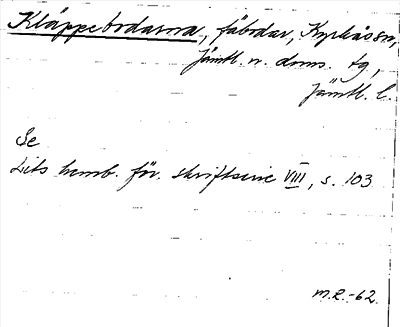 Kläppebodarna, fäbodar, Kyrkåsen,
Jämtl. n. doms. tg,
Jämtl. l.
Se
Lits hemb. för. skriftserie VIII, s. 103
M.E.-62.